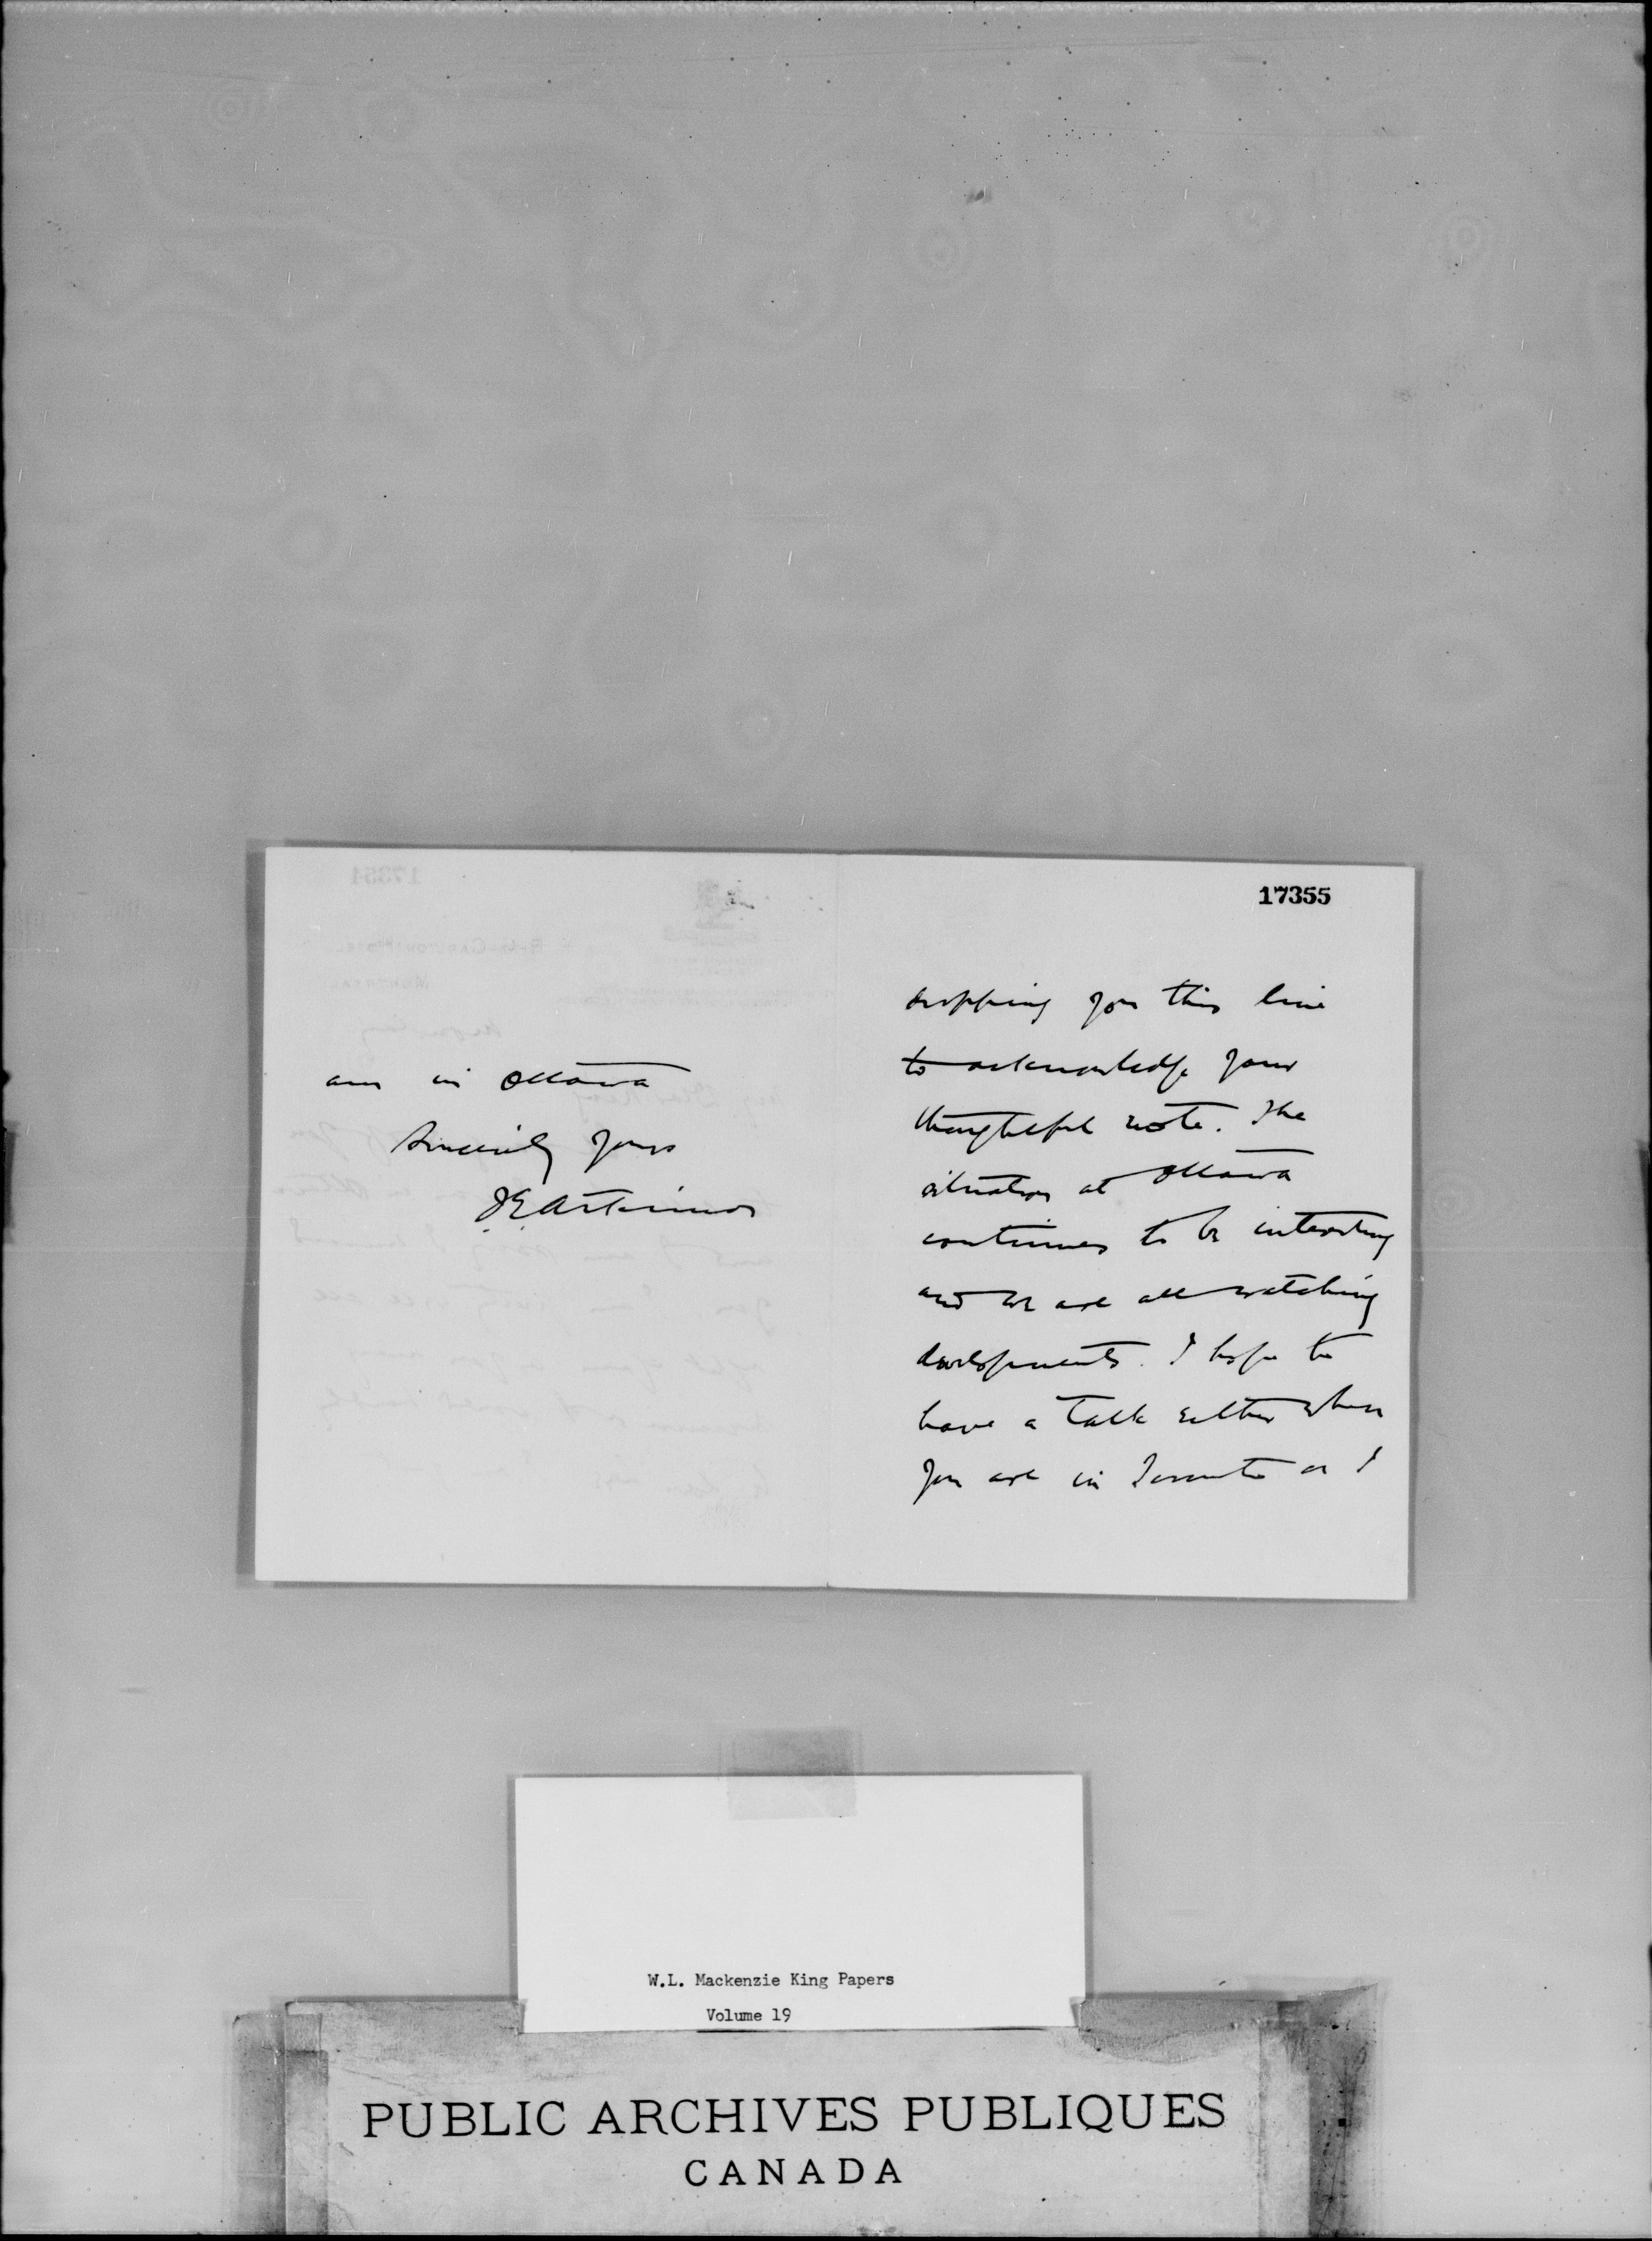 17355
dropping you this line
to acknowledge your
thoughtful note. The
situation at Ottawa
continues to be interesting
and we are all watching
developments. I hope to
have a talk either when
you are in Toronto or I
am in Ottawa
Sincerely yours
J E Atkinson
W.L. Mackenzie King Papers
Volume 19
PUBLIC ARCHIVES PUBLIQUES
CANADA